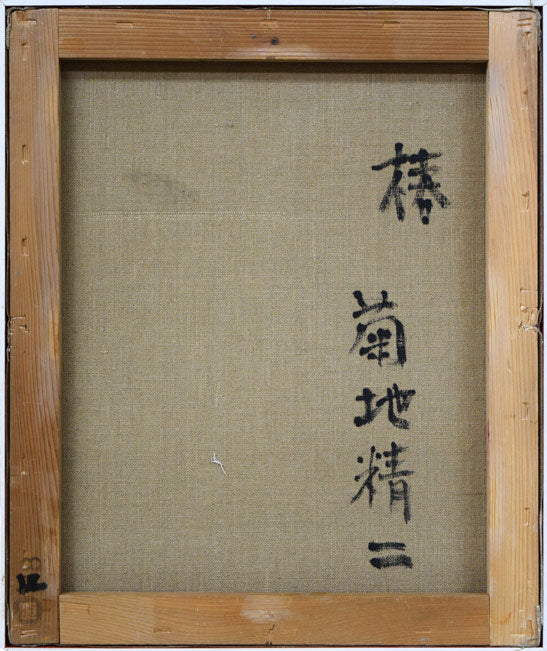 椿
菊地精二
F8